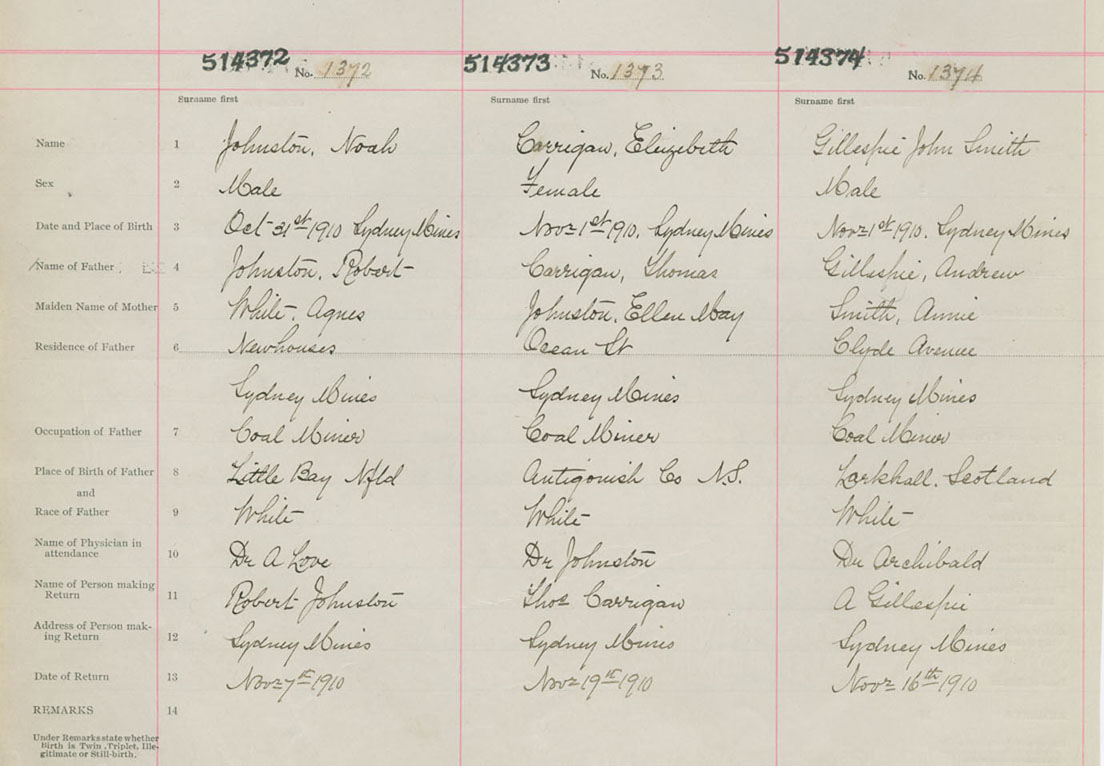 514372 No. 1372 514373 No. 1373 514374 No. 1374
Surname first Surname first Surname first
Name 1 Johnston, Noah Carrigan, Elizibeth Gillespie John Smith
Sex 2 Male Female Male
Date and Place of Birth 3 Oct 31st 1910 Sydney Mines Nov 1st 1910. Sydney Mines Nov 1st 1910. Sydney Mines
Name of Father 4 Johnston, Robert Carrigan, Thomas Gillespie, Andrew
Maiden Name of Mother 5 White, Agnes Johnston, Ellen May Smith, Annie
Residence of Father 6 Newhouses Ocean St Clyde Avenue
Sydney Mines Sydney Mines Sydney Mines
Occupation of Father 7 Coal Miner Coal Miner Coal Miner
Place of Birth of Father 8 Little Bay Nfld Antigonish Co N.S. Larkhall. Scotland
and
Race of Father 9 White White White
Name of Physician in
attendance 10 Dr A Love Dr Johnston Dr Archibald
Name of Person making
Return 11 Robert Johnston Thos Carrigan A Gillespie
Address of Person mak-
ing Return 12 Sydney Mines Sydney Mines Sydney Mines
Date of Return 13 Nov 7th 1910 Nov 19th 1910 Nov 16th 1910
REMARKS 14
Under Remarks state whether
Birth is Twin, Triplet, Ille-
gitimate or Still-birth.